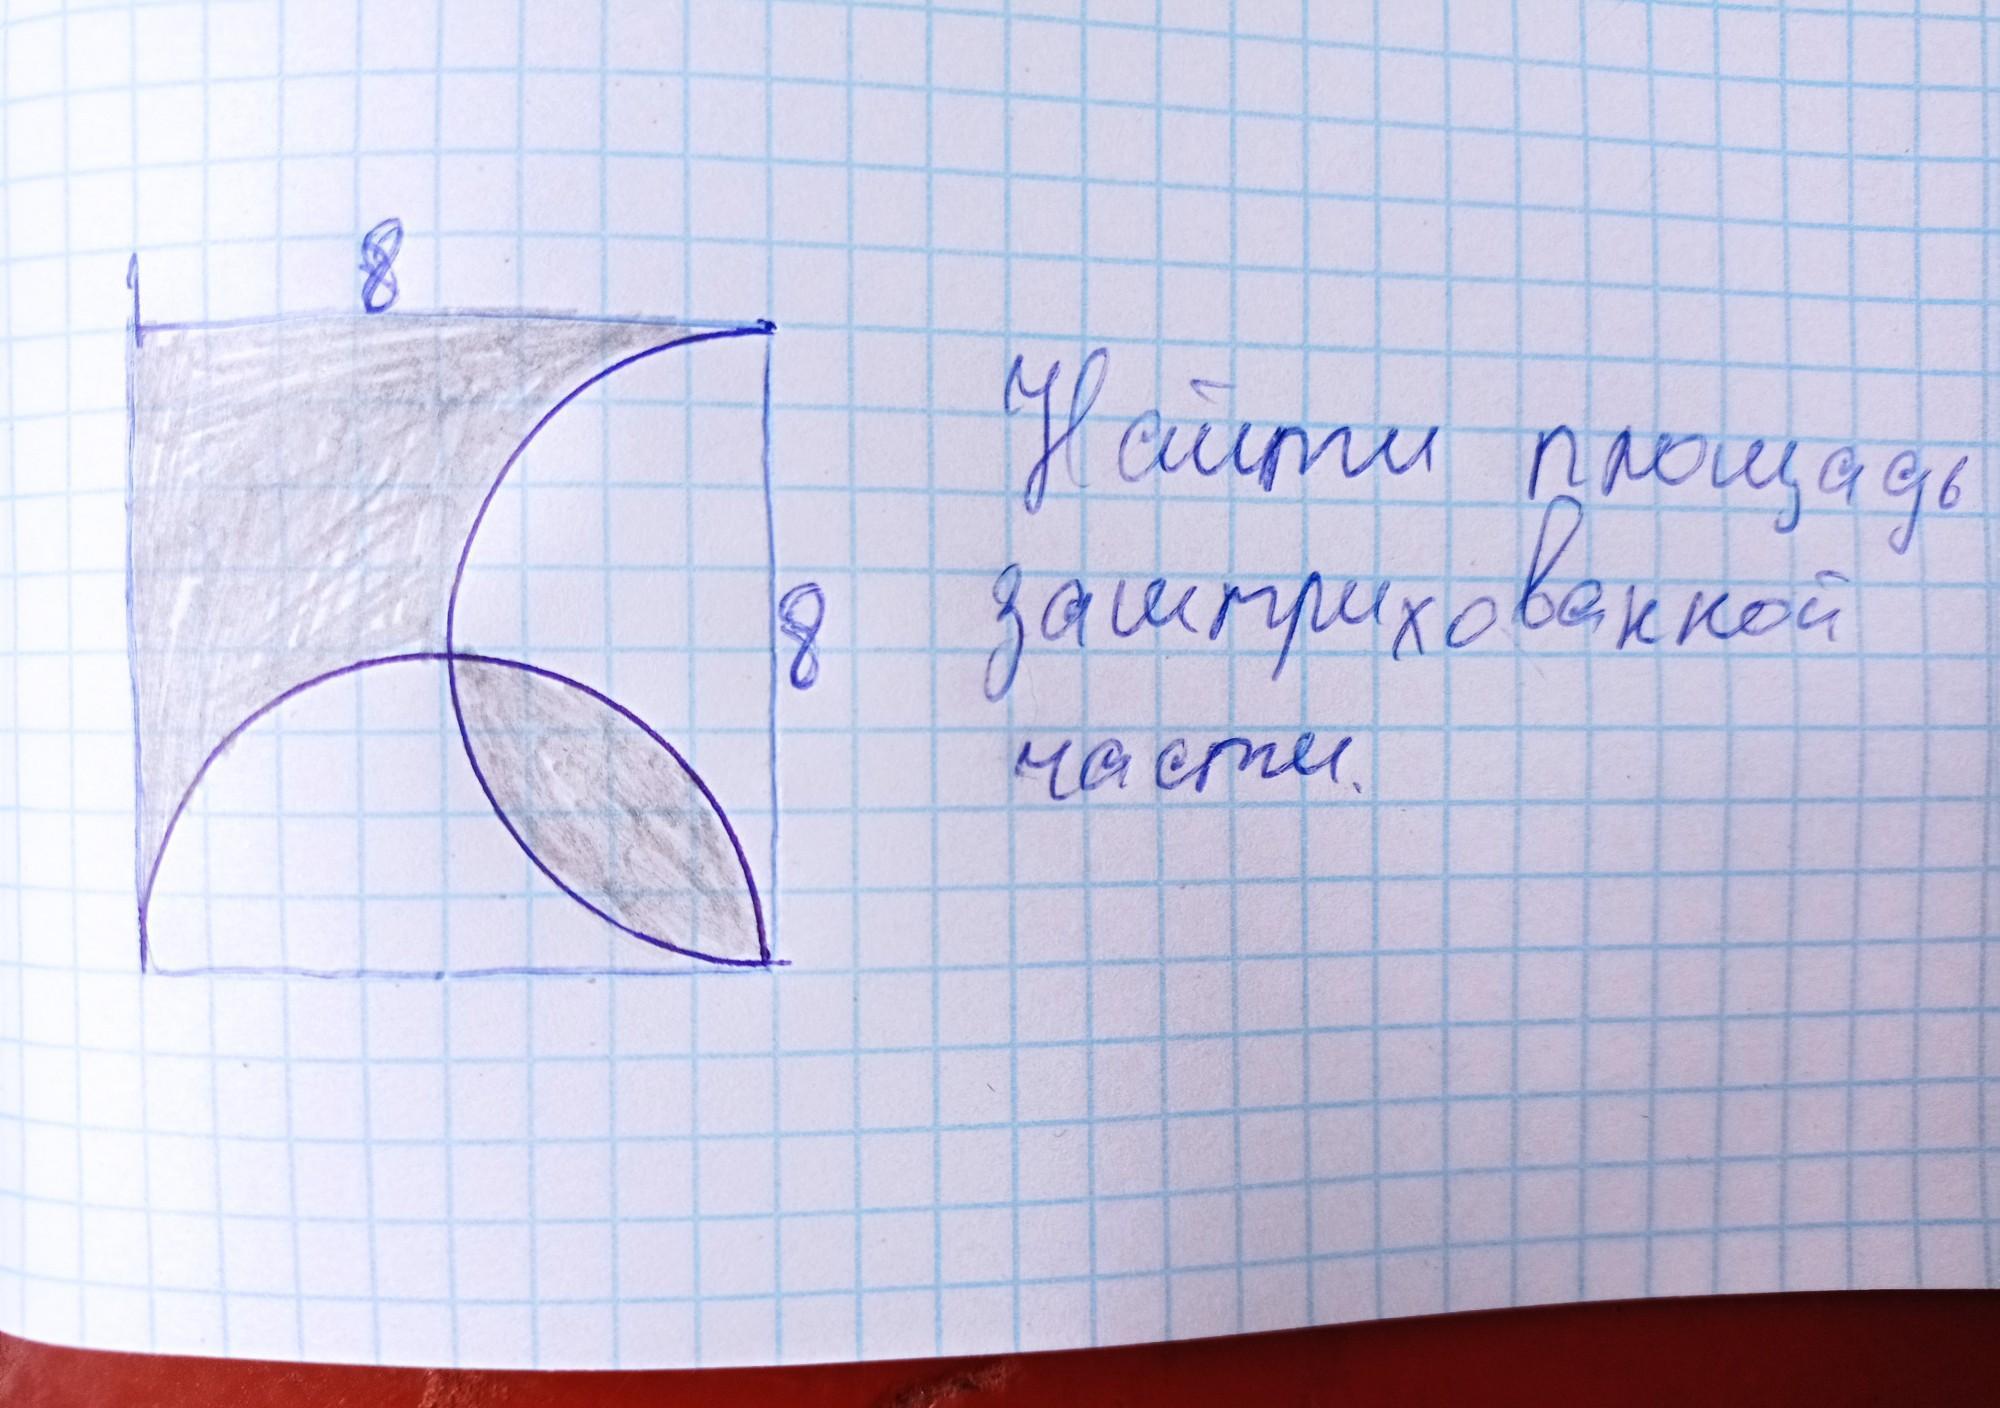 8
8
Найти площадь
заштрихованной
части.